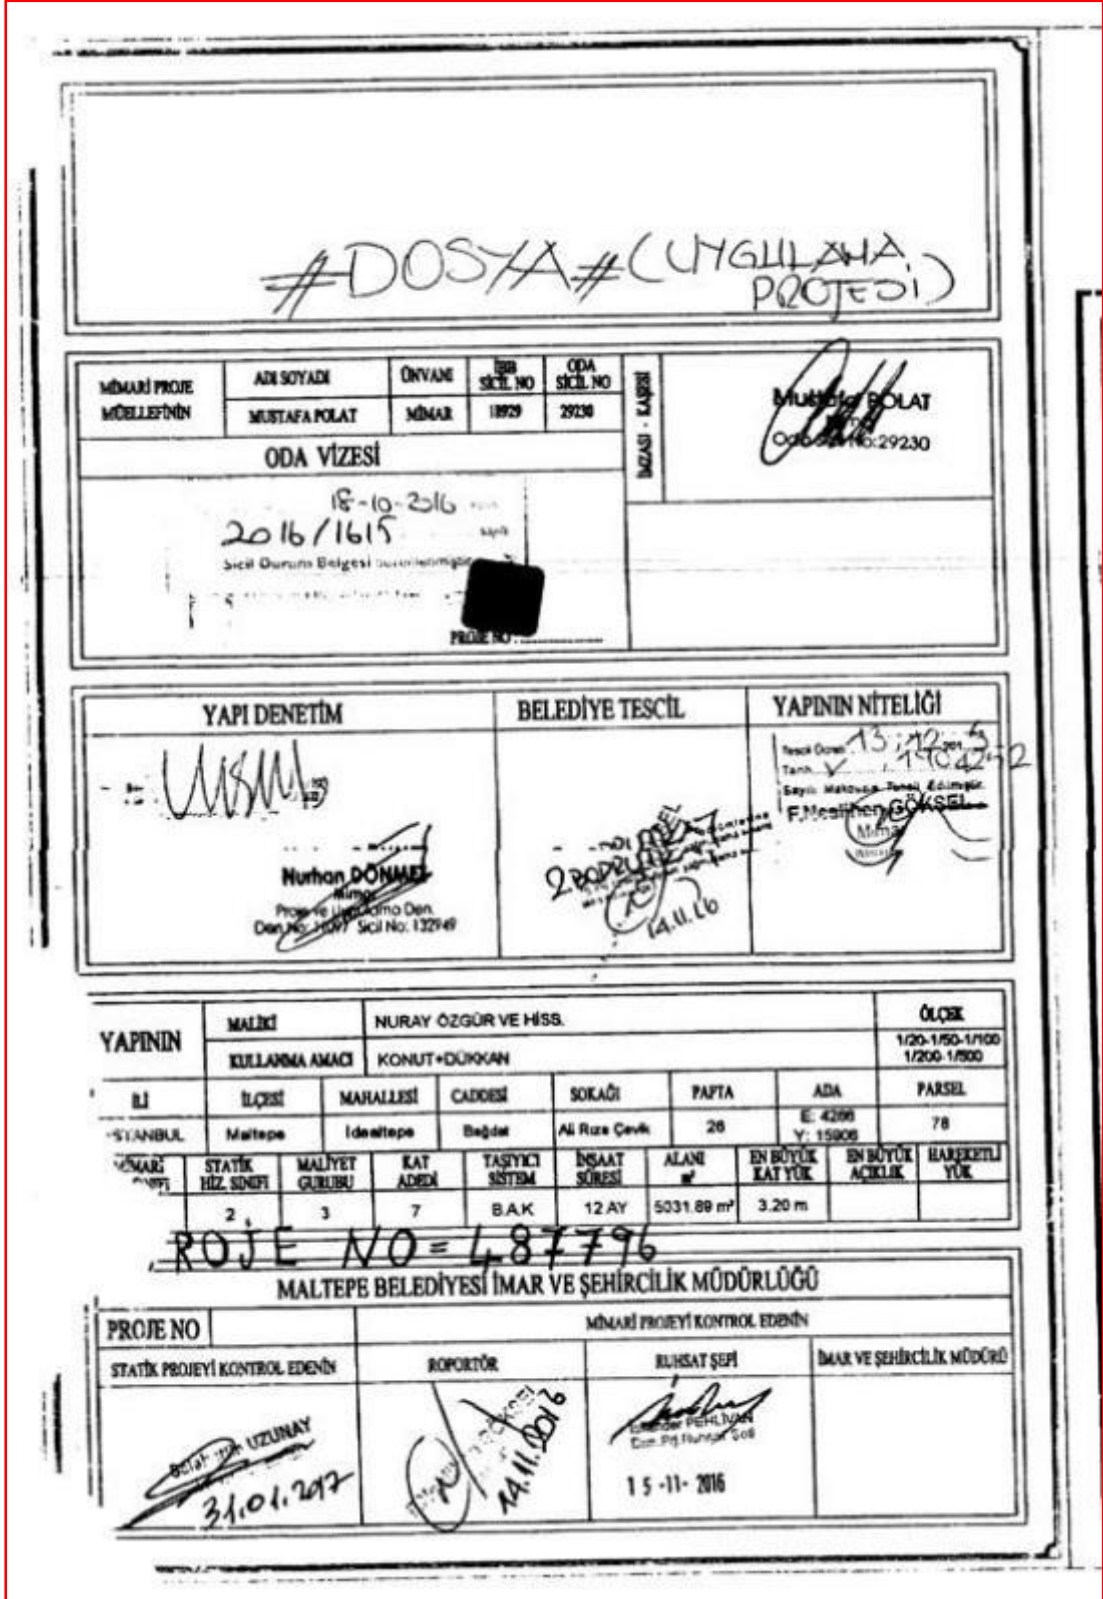 #DOSYA# (UYGULAMA
PROJESİ)
MİMARİ PROJE
MÜELLEFİNİN
ADI SOYADI
ÜNVANI
SİCİL NO
ODA
SİCİL NO
MUSTAFA POLAT
MİMAR
18929
29230
İMZASI - KAŞESİ
Mustafa POLAT
No:29230
ODA VİZESİ
18-10-2016
2016/1615
Sicil Durum Belgesi
PROJE NO :
YAPI DENETİM
BELEDİYE TESCİL
YAPININ NİTELİĞİ
Nurhan DÖNMEZ
Mimar
Proje ve Uygulama Den.
Sicil No: 132949
2 BODRUM
14.11.16
F.Neslihan GÖKSEL
Mimar
YAPININ
MALİKİ
NURAY ÖZGÜR VE HİSS.
ÖLÇEK
KULLANMA AMACI
KONUT+DÜKKAN
1/20-1/50-1/100
1/200-1/500
İLİ
İLÇESİ
MAHALLESİ
CADDESİ
SOKAĞI
PAFTA
ADA
PARSEL
STANBUL
Maltepe
İdealtepe
Bağdat
Ali Rıza Çevik
26
E: 4266
Y: 15906
78
MİMARİ
STATİK
HİZ. SINIFI
MALİYET
GURUBU
KAT
ADEDİ
TAŞIYICI
SİSTEM
İNŞAAT
SÜRESİ
ALANI
m²
EN BÜYÜK
KAT YÜK
EN BÜYÜK
AÇIKLIK
HAREKETLİ
YÜK
2
3
7
B.A.K
12 AY
5031.89 m²
3.20 m
ROJE NO=487796
MALTEPE BELEDİYESİ İMAR VE ŞEHİRCİLİK MÜDÜRLÜĞÜ
PROJE NO
MİMARİ PROJEYİ KONTROL EDENİN
STATİK PROJEYİ KONTROL EDENİN
ROPORTÖR
RUHSAT ŞEFİ
İMAR VE ŞEHİRCİLİK MÜDÜRÜ
UZUNAY
31.01.2017
GÖKSEL
14.11.2016
PEHLİVAN
15-11-2016